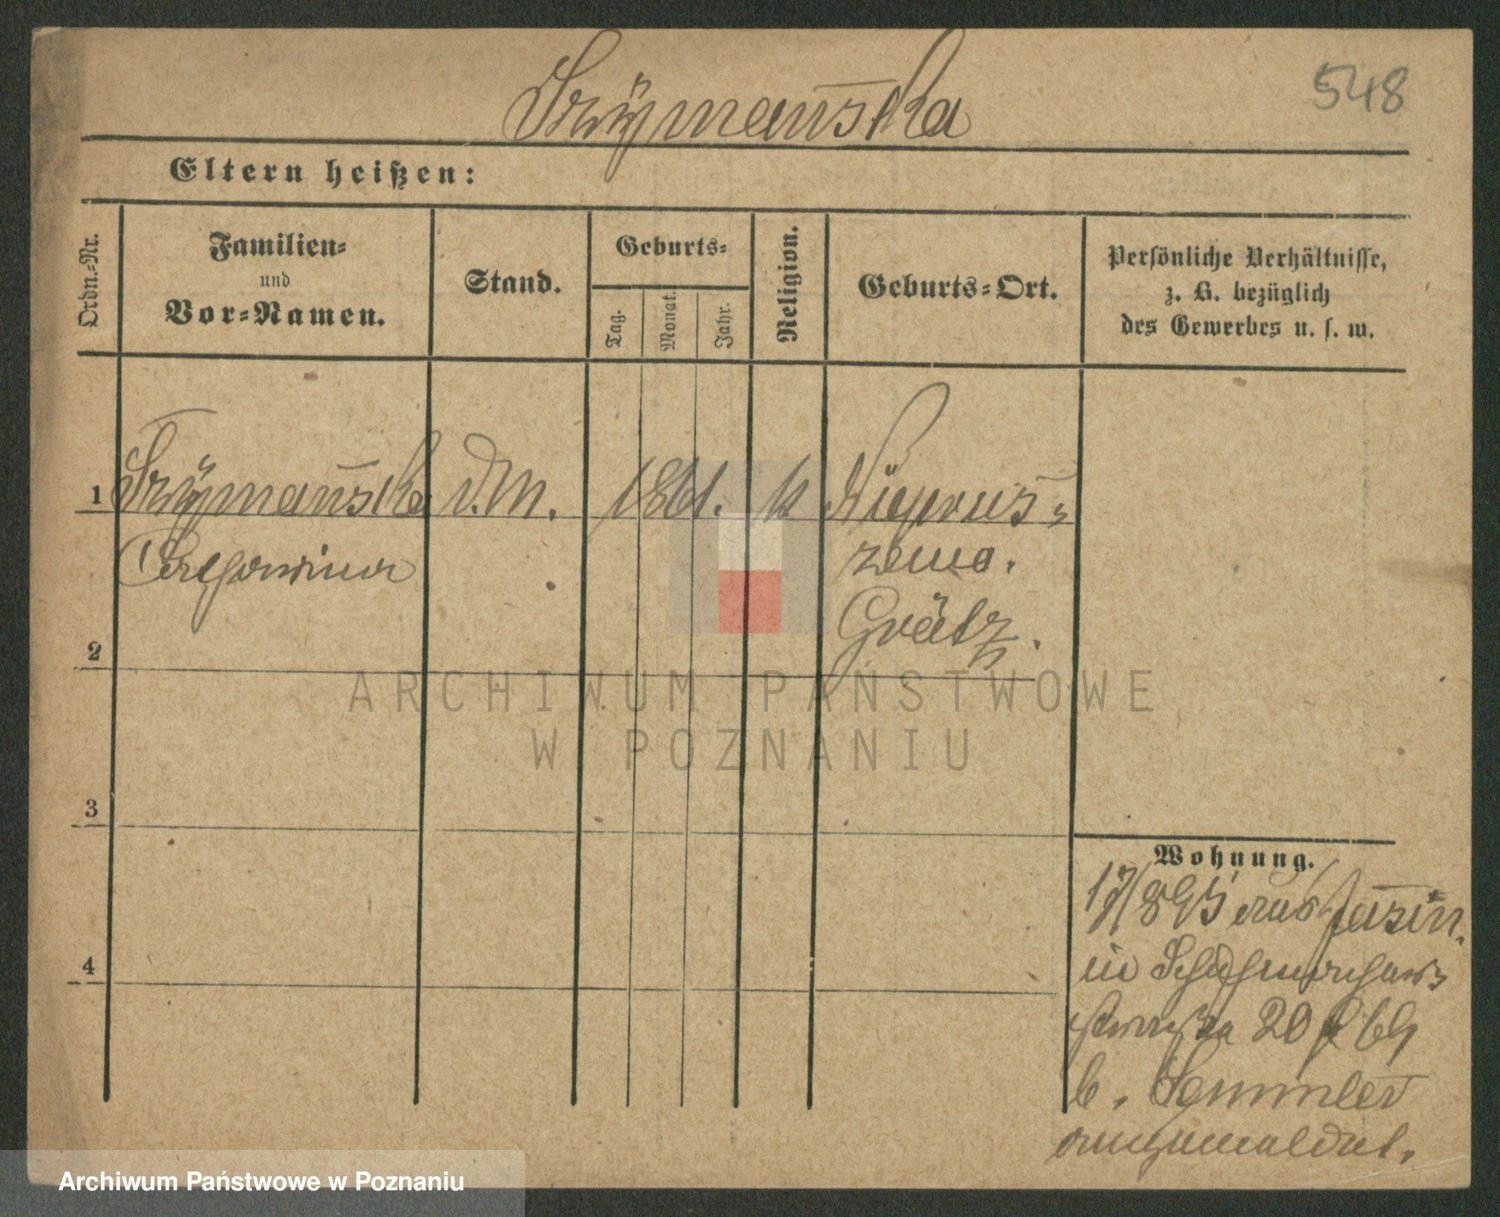 Szÿmańska
548
Eltern heißen:
Ordn.-Nr.
Familien-
und
Vor-Namen.
Stand.
Geburts-
Tag.
Monat.
Jahr.
Religion.
Geburts-Ort.
Persönliche Verhältnisse,
z. B. bezüglich
des Gewerbes u. s. w.
1 Szÿmańska d. M. 1861. k Nieprus-
zewo.
Grätz.
2
3
4
Wohnung.
17/8 95 aus Jasin
in
20
b.
angemeldet.
ARCHIWUM PAŃSTWOWE
W POZNANIU
Archiwum Państwowe w Poznaniu